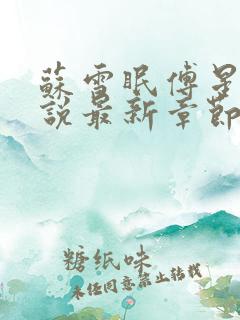 蘇雪眠傅星
說最新章節
糖纸味
未经同意禁止转载